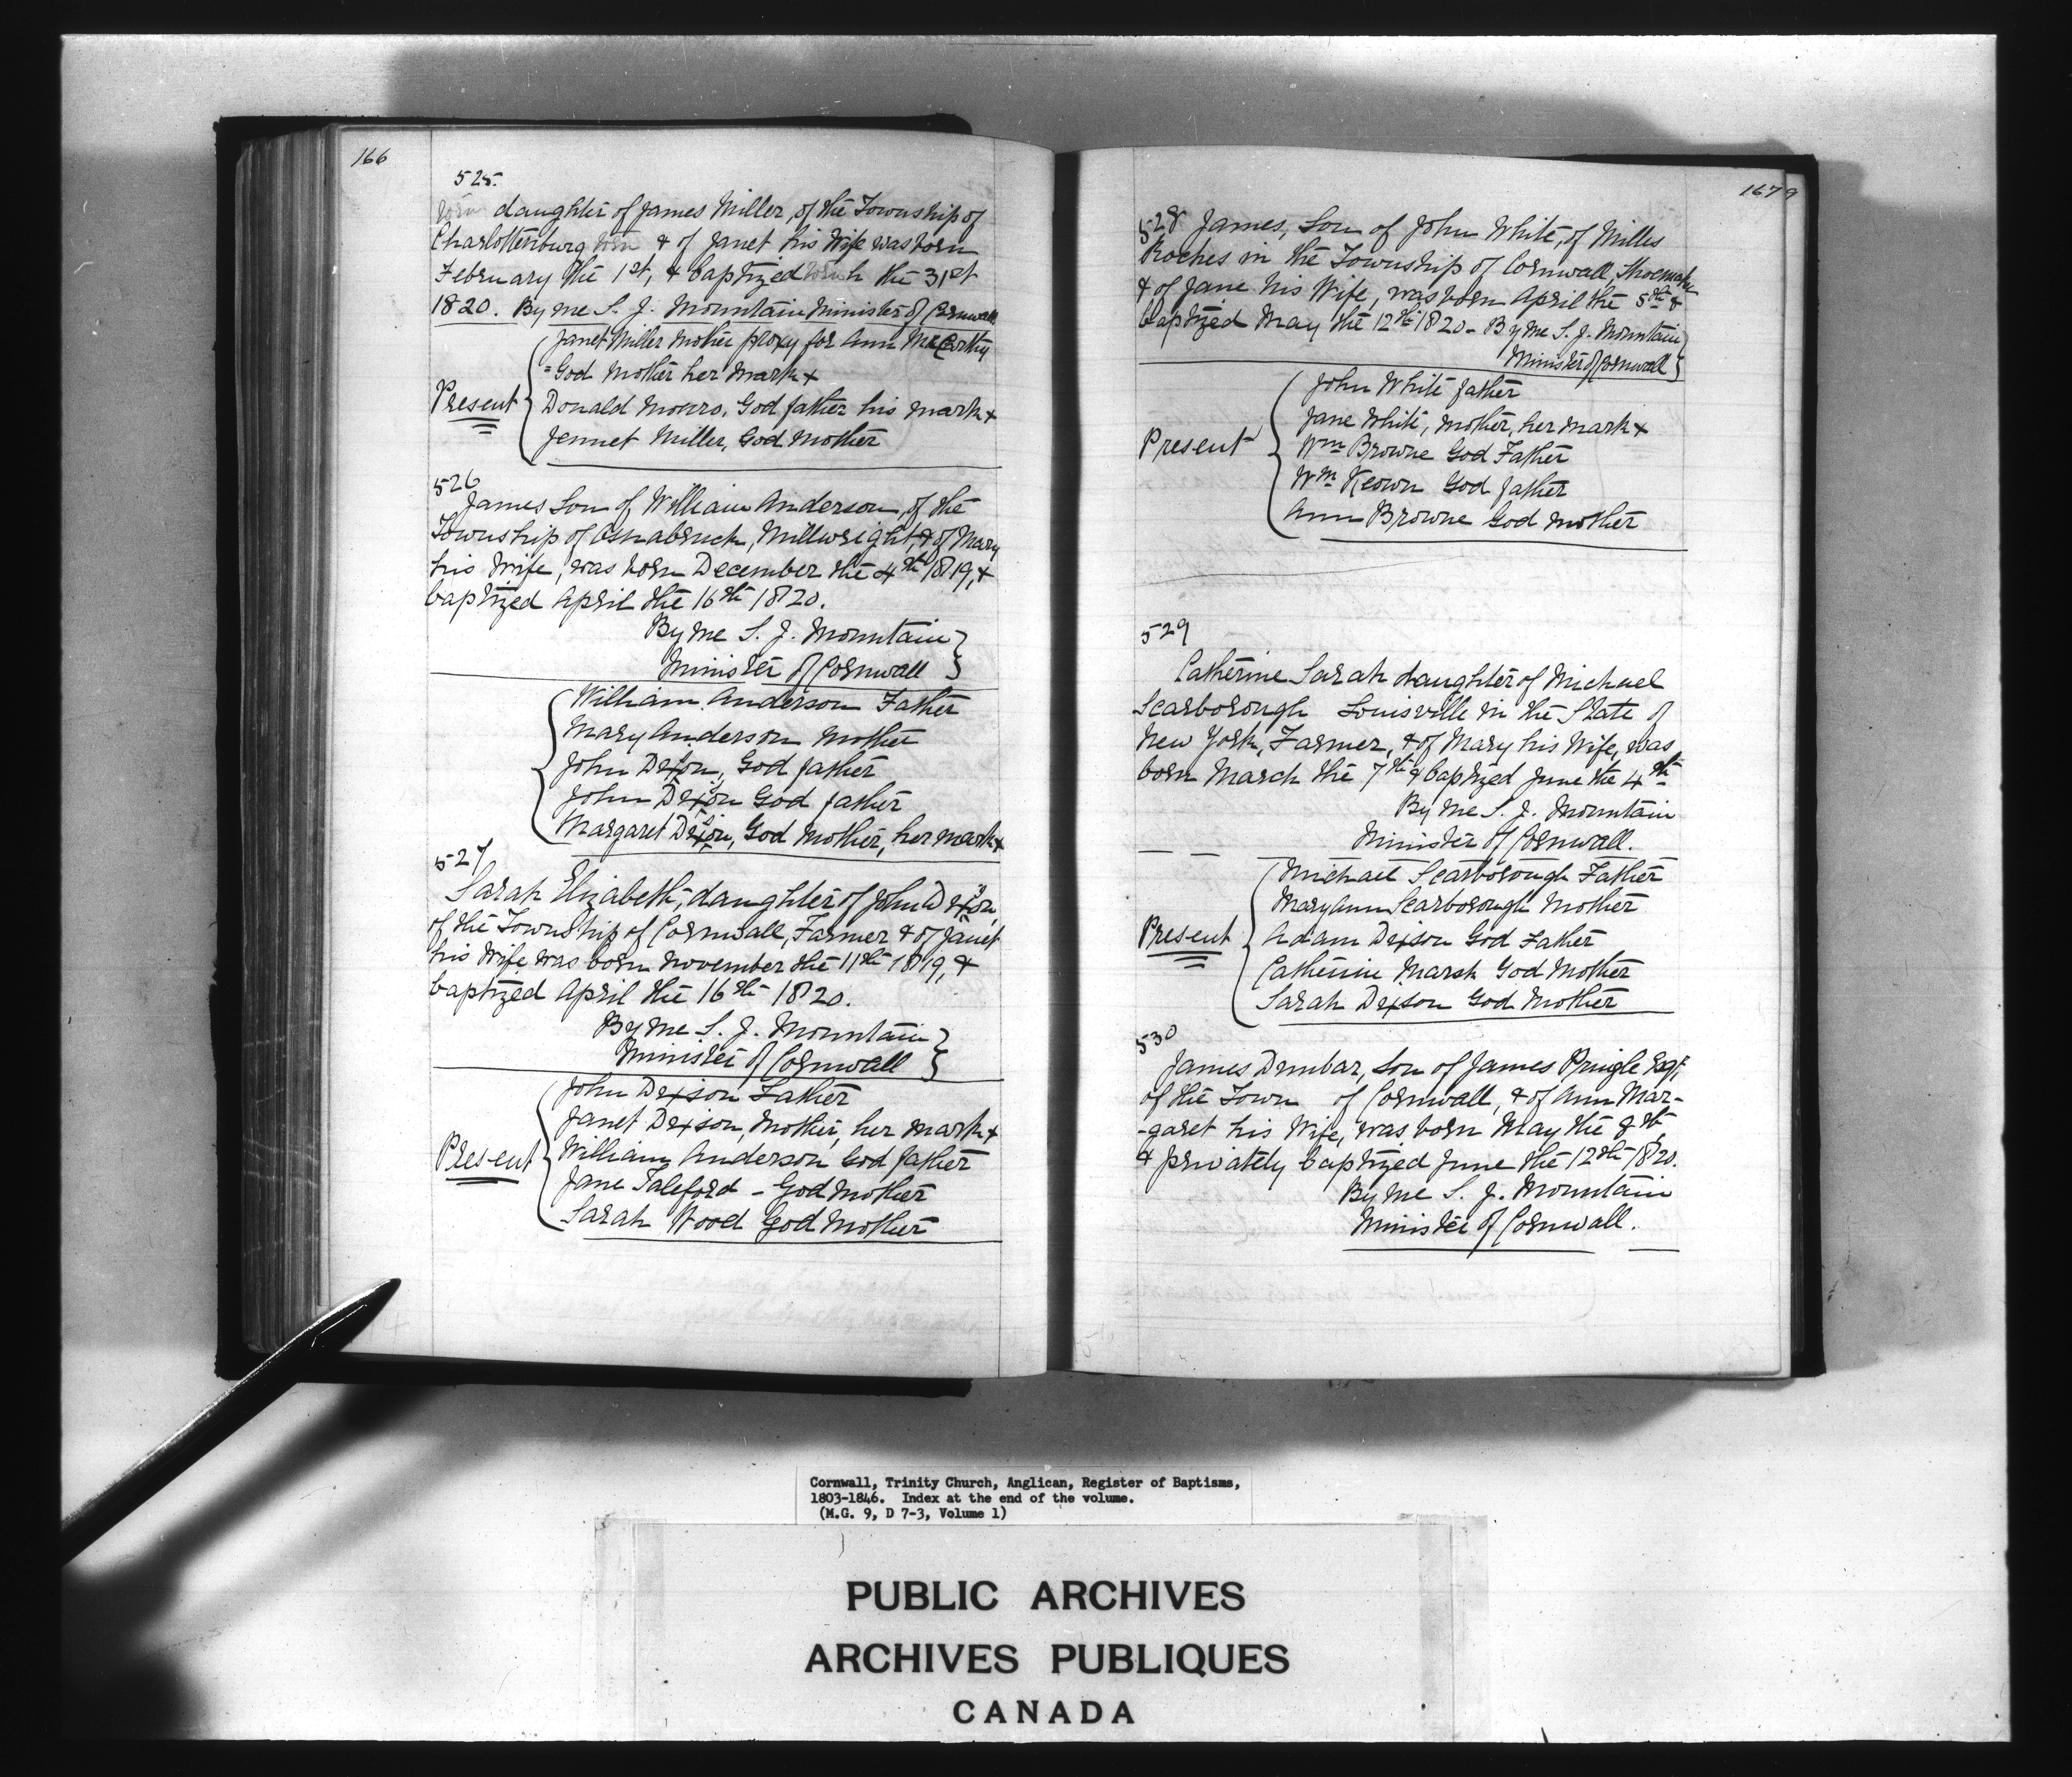 166
525.
torn daughter of James Miller, of the Township of
Charlottenburg torn & of Janet his Wife was born
February the 1st, & baptized torn h the 31st
1820. By me S. J. Mountain Minister of Cornwall
Janet Miller Mother proxy for Ann McCarthy
=God Mother her mark x
Present
Donald Monro, God father his mark x
Jennet Miller, God Mother
526
James Son of William Anderson, of the
Township of Osnabruck, Millwright, & of Mary
his Wife, was born December the 4th 1819, &
baptized April the 16th 1820.
By me S. J. Mountain
Minister of Cornwall
William Anderson Father
Mary Anderson Mother
John Dixon, God father
John Dixon God father
Margaret Dixon, God Mother, her mark x
527
Sarah Elizabeth, daughter of John Dixon,
of the Township of Cornwall, Farmer & of Janet
his Wife was born November the 11th 1819, &
baptized April the 16th 1820.
By me S. J. Mountain
Minister of Cornwall
John Dixson Father
Janet Dixson, Mother, her mark x
Present
William Anderson God father
Jane Taleford - God Mother
Sarah Wood God Mother
1679
528 James, Son of John White, of Milles
Roches in the Township of Cornwall, Shoemaker
& of Jane his Wife, was born April the 5th &
baptized May the 12th 1820 - By me S. J. Mountain
Minister of Cornwall
John White father
Jane White, Mother, her mark x
Present
Wm Browne God Father
Wm Keown God father
Ann Browne God Mother
529
Catherine Sarah daughter of Michael
Scarborough Louisville in the State of
New York, Farmer, & of Mary his Wife, was
born March the 7th & baptized June the 4th
By me S. J. Mountain
Minister of Cornwall.
Michael Scarborough Father
Mary Ann Scarborough Mother
Present
Adam Dixson God Father
Catherine Marsh God Mother
Sarah Dixson God Mother
530
James Dunbar, Son of James Pringle Esqr,
of the Town of Cornwall, & of Ann Mar-
-garet his Wife, was born May the 8th
& privately baptized June the 12th 1820.
By me S. J. Mountain
Minister of Cornwall.
Cornwall, Trinity Church, Anglican, Register of Baptisms,
1803-1846. Index at the end of the volume.
(M.G. 9, D 7-3, Volume 1)
PUBLIC ARCHIVES
ARCHIVES PUBLIQUES
CANADA